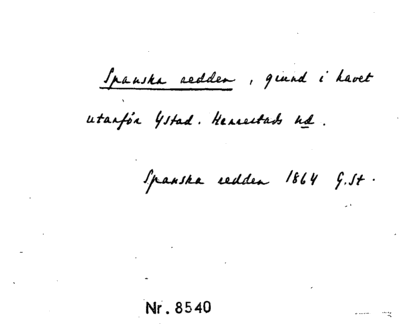 Spanska redden, grund i havet
utanför Ystad. Herrestads hd.
Spanska redden 1864 G.St.
Nr. 8540